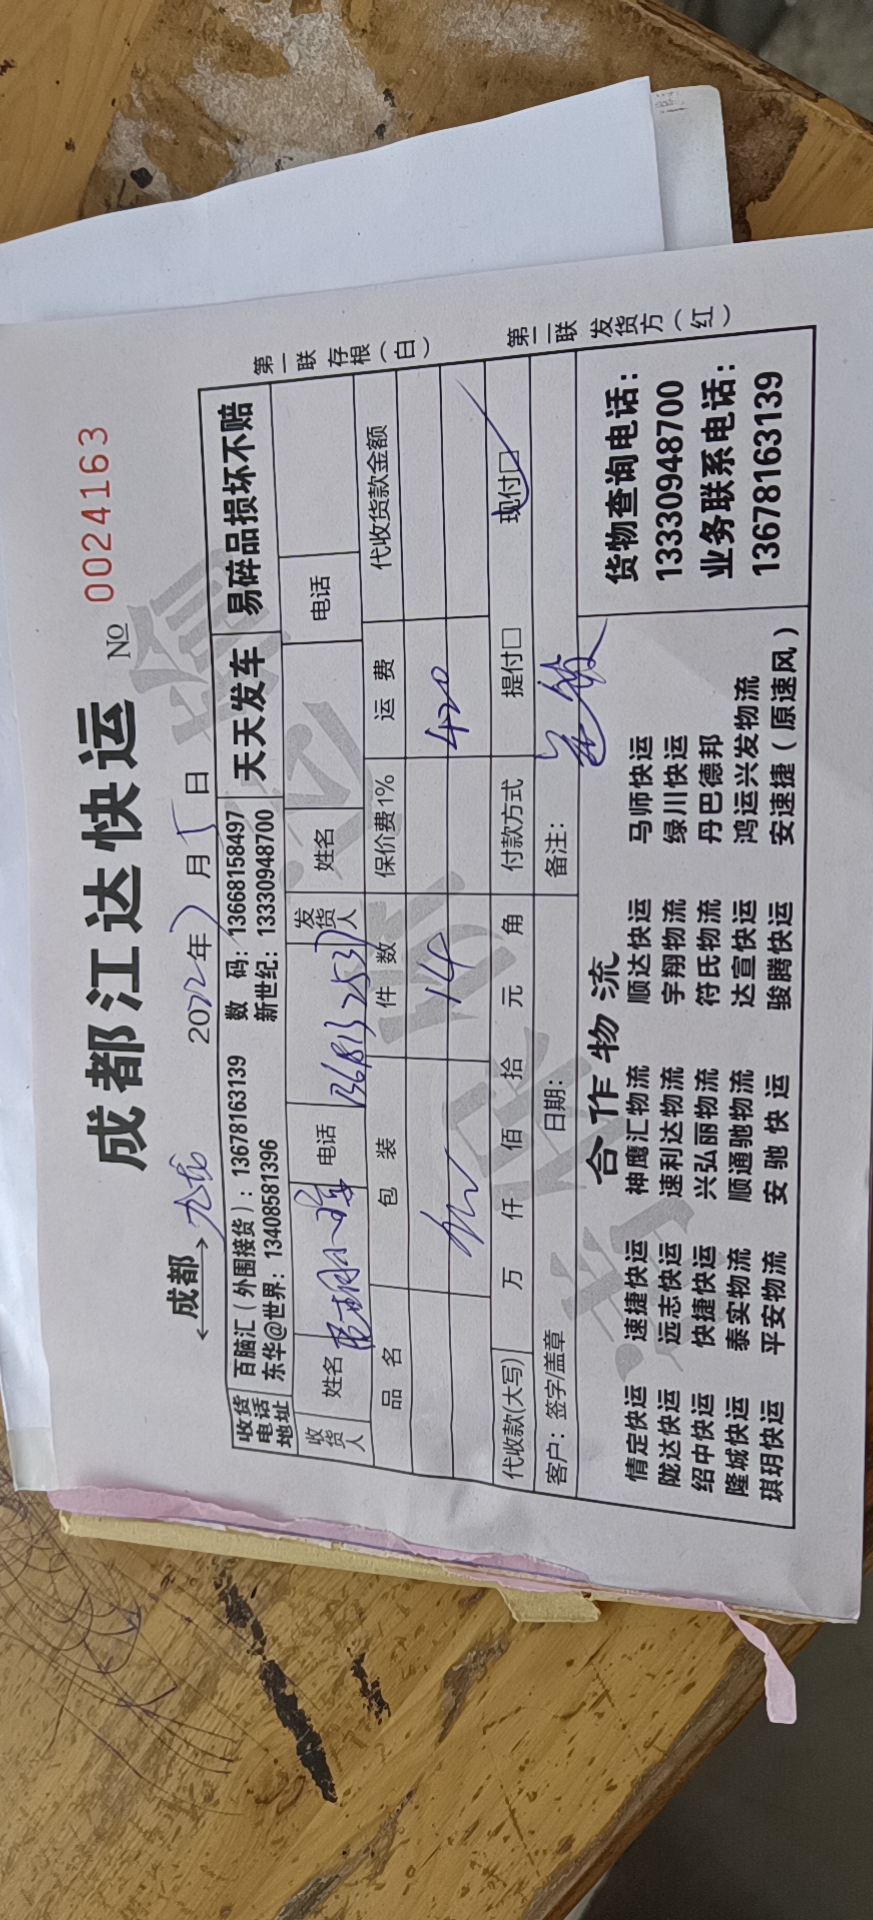 成都江达快运 № 0024163
成都 九龙 2022年7月5日
收货电话地址 百脑汇（外围接货）：13678163139 数 码：13668158497 天天发车 易碎品损坏不赔
东华@世界：13408581396 新世纪：13330948700
收货人 姓名 电话 发货人 姓名 电话
品 名 包 装 件 数 保价费1% 运 费 代收货款金额
14 420
代收款(大写) 万 仟 佰 拾 元 角 付款方式 提付□ 现付□
客户：签字/盖章 日期： 备注：
合作物流
情定快运 速捷快运 神鹰汇物流 顺达快运 马师快运
陇达快运 远志快运 速利达物流 宇翔物流 绿川快运
绍中快运 快捷快运 兴弘丽物流 符氏物流 丹巴德邦
隆城快运 泰实物流 顺通驰物流 达宣快运 鸿运兴发物流
琪玥快运 平安物流 安驰快运 骏腾快运 安速捷（原速风）
货物查询电话：
13330948700
业务联系电话：
13678163139
第一联 存根（白）
第二联 发货方（红）